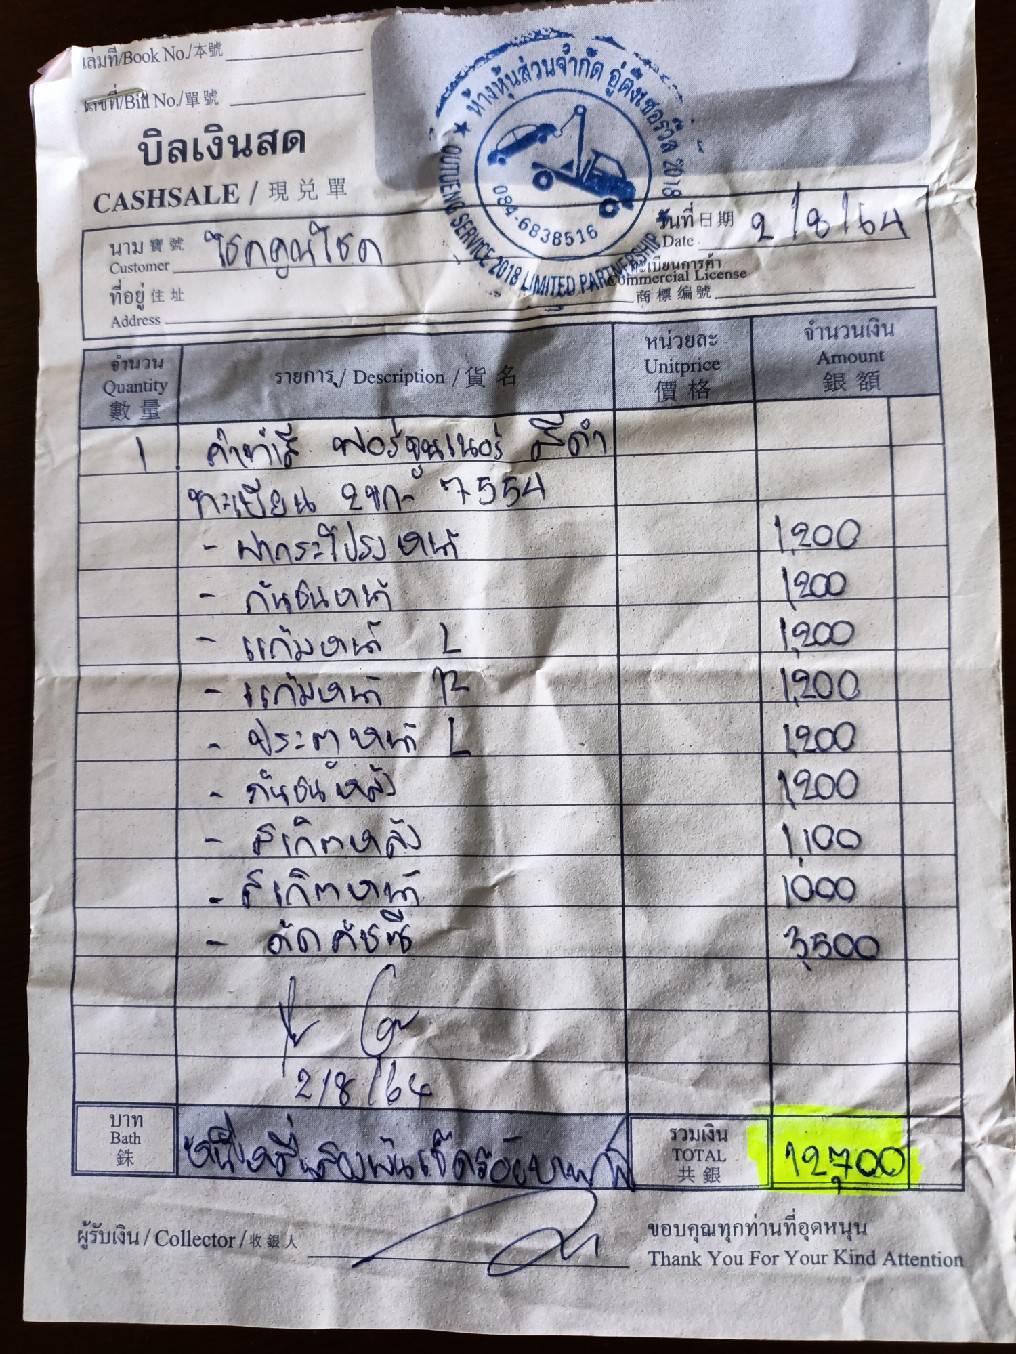 เล่มที่/Book No./本號
เลขที่/Bill No./單號
บิลเงินสด
CASHSALE / 現兌單
ห้างหุ้นส่วนจำกัด อู่ตึ๋งเซอร์วิส 2018
OUTUENG SERVICE 2018 LIMITED PARTNERSHIP
084-6838516
วันที่ 日期 Date 2/8/64
นาม 寶號 Customer โชคคูณโชค
ทะเบียนการค้า Commercial License 商標編號
ที่อยู่ 住址 Address
จำนวน Quantity 數量 รายการ / Description / 貨名 หน่วยละ Unitprice 價格 จำนวนเงิน Amount 銀額
1 ค่าทำสี ฟอร์จูนเนอร์ สีดำ
ทะเบียน 2ขก 7554
- ฝากระโปรงหน้า 1,200
- กันชนหน้า 1,200
- แก้มหน้า L 1,200
- แก้มหน้า R 1,200
- ประตูหน้า L 1,200
- กันชนหลัง 1,200
- สเกิตหลัง 1,100
- สเกิตหน้า 1,000
- ดัดคัชซี 3,500
2/8/64
บาท Bath 銖 หนึ่งหมื่นสองพันเจ็ดร้อยบาท รวมเงิน TOTAL 共銀 12,700
ผู้รับเงิน / Collector / 收銀人
ขอบคุณทุกท่านที่อุดหนุน
Thank You For Your Kind Attention